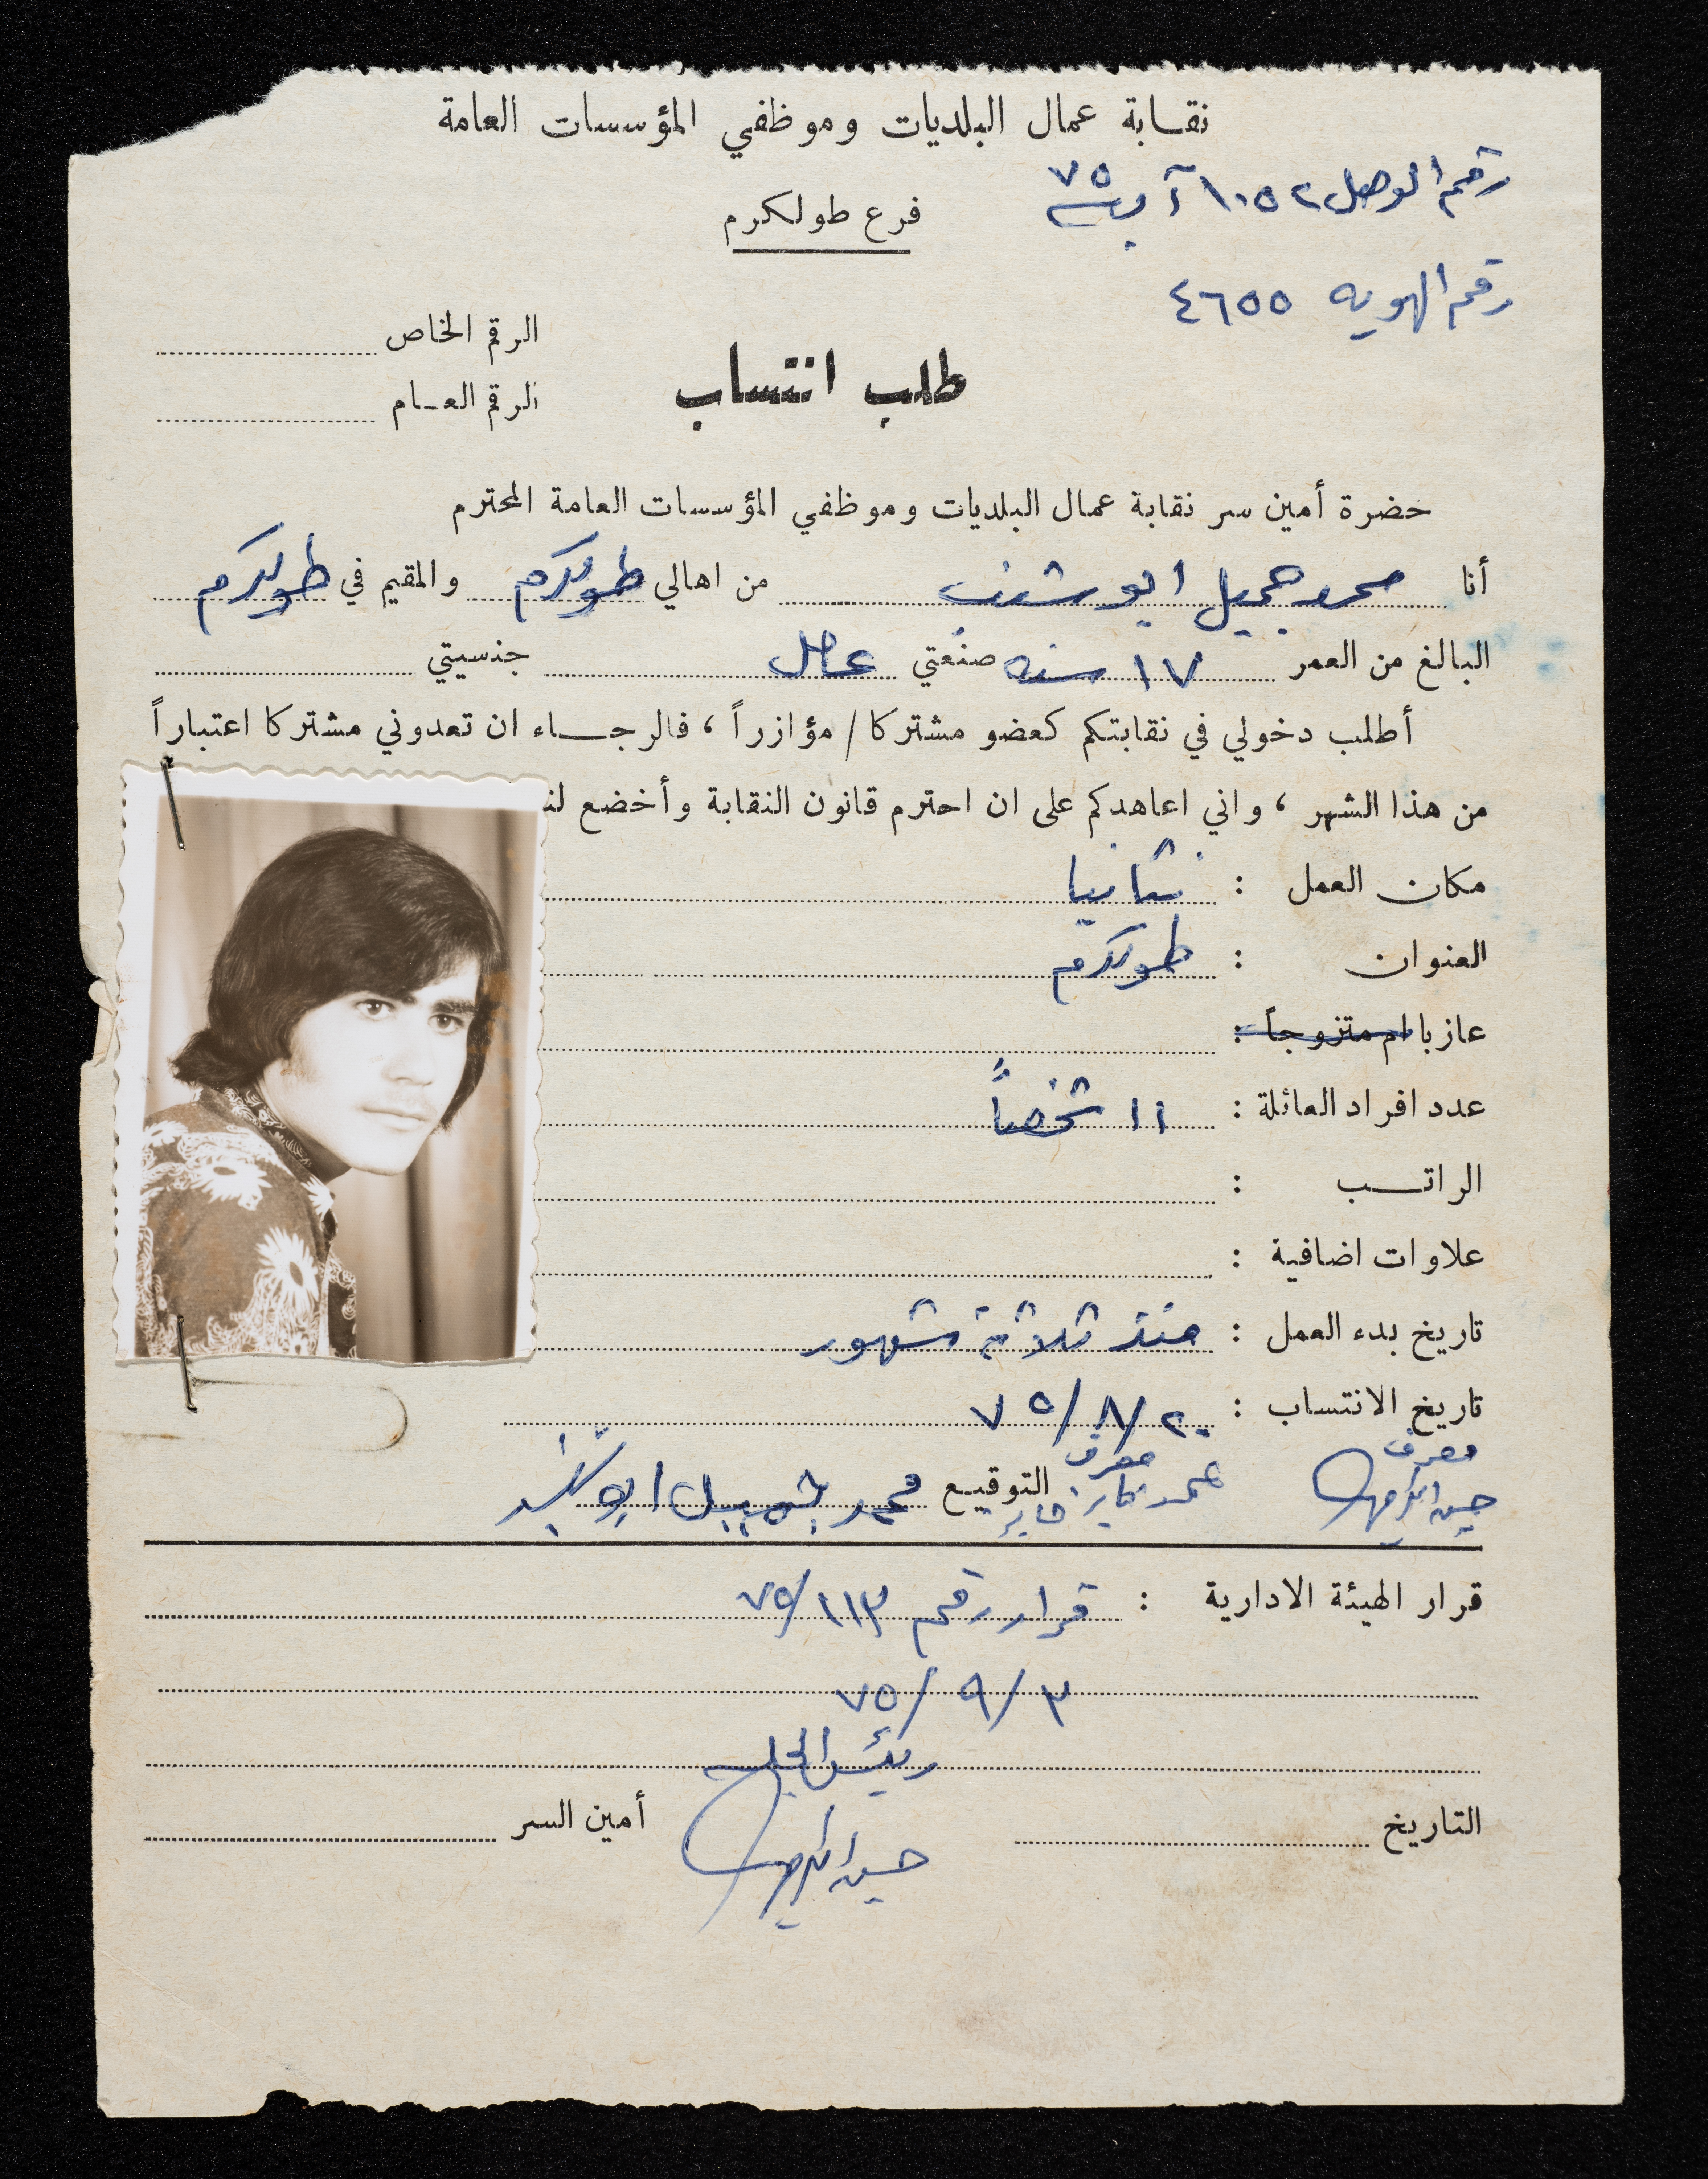 نقابة عمال البلديات وموظفي المؤسسات العامة
رقم الوصل ١٠٥٢ آب ٧٥
فرع طولكرم
رقم الهويه ٤٦٥٥
الرقم الخاص
طلب انتساب
الرقم العام
حضرة أمين سر نقابة عمال البلديات وموظفي المؤسسات العامة المحترم
أنا محمد جميل ابو شنب من اهالي طولكرم والمقيم في طولكرم
البالغ من العمر ١٧ سنه صنعتي عامل جنسيتي
أطلب دخولي في نقابتكم كعضو مشتركا / مؤازراً ، فالرجاء ان تعدوني مشتركا اعتباراً
من هذا الشهر ، واني اعاهدكم على ان احترم قانون النقابة وأخضع لن
مكان العمل : نتانيا
العنوان : طولكرم
عازبا ام متزوجاً :
عدد افراد العائلة : ١١ شخصاً
الراتب :
علاوات اضافية :
تاريخ بدء العمل : منذ ثلاثة شهور
تاريخ الانتساب : ٢٠/٨/٧٥
معرف معرف
التوقيع محمد جميل ابو شنب
قرار الهيئة الادارية : قرار رقم ١١٣/٧٥
٣/٩/٧٥
التاريخ أمين السر